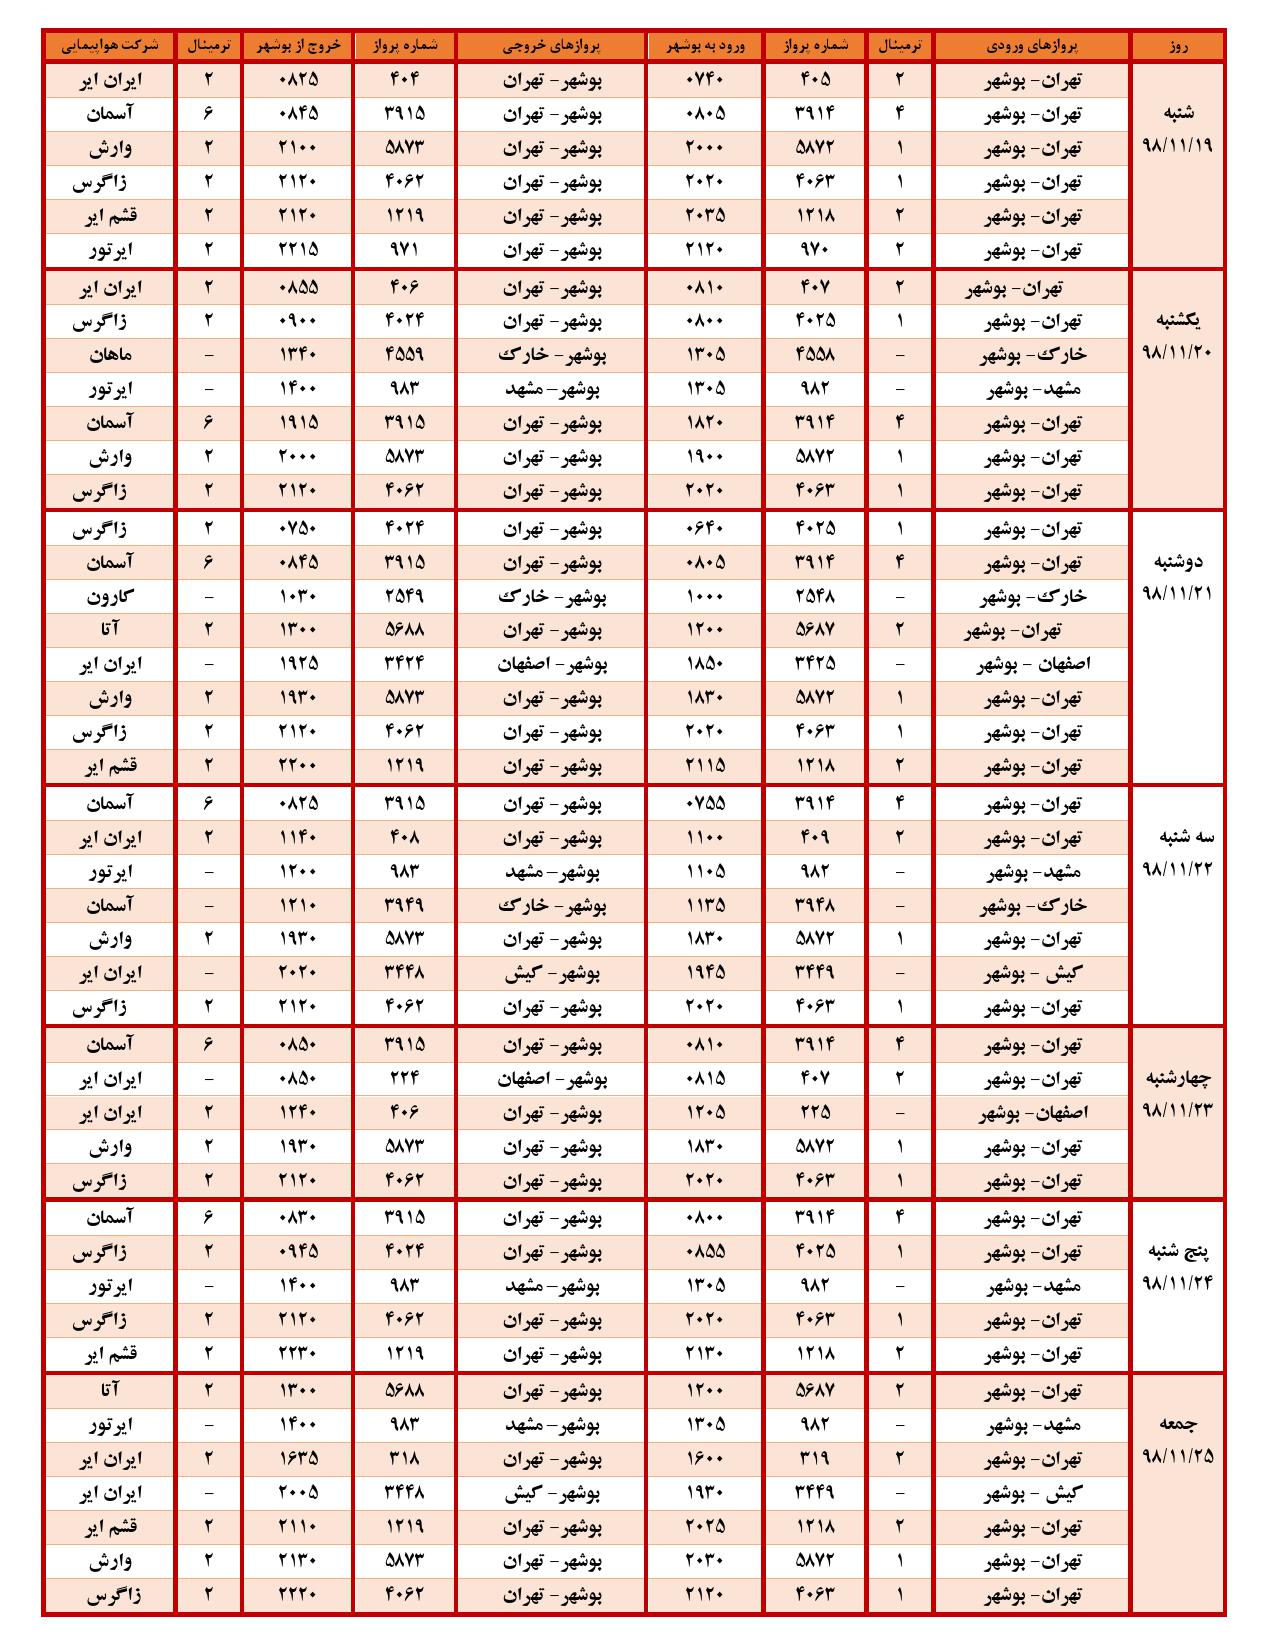 روز پروازهای ورودی ترمینال شماره پرواز ورود به بوشهر پروازهای خروجی شماره پرواز خروج از بوشهر ترمینال شرکت هواپیمایی
شنبه
۹۸/۱۱/۱۹
تهران- بوشهر ۲ ۴۰۵ ۰۷۴۰ بوشهر- تهران ۴۰۴ ۰۸۲۵ ۲ ایران ایر
تهران- بوشهر ۴ ۳۹۱۴ ۰۸۰۵ بوشهر- تهران ۳۹۱۵ ۰۸۴۵ ۶ آسمان
تهران- بوشهر ۱ ۵۸۷۲ ۲۰۰۰ بوشهر- تهران ۵۸۷۳ ۲۱۰۰ ۲ وارش
تهران- بوشهر ۱ ۴۰۶۳ ۲۰۲۰ بوشهر- تهران ۴۰۶۲ ۲۱۲۰ ۲ زاگرس
تهران- بوشهر ۲ ۱۲۱۸ ۲۰۳۵ بوشهر- تهران ۱۲۱۹ ۲۱۲۰ ۲ قشم ایر
تهران- بوشهر ۲ ۹۷۰ ۲۱۲۰ بوشهر- تهران ۹۷۱ ۲۲۱۵ ۲ ایرتور
یکشنبه
۹۸/۱۱/۲۰
تهران- بوشهر ۲ ۴۰۷ ۰۸۱۰ بوشهر- تهران ۴۰۶ ۰۸۵۵ ۲ ایران ایر
تهران- بوشهر ۱ ۴۰۲۵ ۰۸۰۰ بوشهر- تهران ۴۰۲۴ ۰۹۰۰ ۲ زاگرس
خارک- بوشهر - ۴۵۵۸ ۱۳۰۵ بوشهر- خارک ۴۵۵۹ ۱۳۴۰ - ماهان
مشهد- بوشهر - ۹۸۲ ۱۳۰۵ بوشهر- مشهد ۹۸۳ ۱۴۰۰ - ایرتور
تهران- بوشهر ۴ ۳۹۱۴ ۱۸۲۰ بوشهر- تهران ۳۹۱۵ ۱۹۱۵ ۶ آسمان
تهران- بوشهر ۱ ۵۸۷۲ ۱۹۰۰ بوشهر- تهران ۵۸۷۳ ۲۰۰۰ ۲ وارش
تهران- بوشهر ۱ ۴۰۶۳ ۲۰۲۰ بوشهر- تهران ۴۰۶۲ ۲۱۲۰ ۲ زاگرس
دوشنبه
۹۸/۱۱/۲۱
تهران- بوشهر ۱ ۴۰۲۵ ۰۶۴۰ بوشهر- تهران ۴۰۲۴ ۰۷۵۰ ۲ زاگرس
تهران- بوشهر ۴ ۳۹۱۴ ۰۸۰۵ بوشهر- تهران ۳۹۱۵ ۰۸۴۵ ۶ آسمان
خارک- بوشهر - ۲۵۴۸ ۱۰۰۰ بوشهر- خارک ۲۵۴۹ ۱۰۳۰ - کارون
تهران- بوشهر ۲ ۵۶۸۷ ۱۲۰۰ بوشهر- تهران ۵۶۸۸ ۱۳۰۰ ۲ آتا
اصفهان - بوشهر - ۳۴۲۵ ۱۸۵۰ بوشهر- اصفهان ۳۴۲۴ ۱۹۲۵ - ایران ایر
تهران- بوشهر ۱ ۵۸۷۲ ۱۸۳۰ بوشهر- تهران ۵۸۷۳ ۱۹۳۰ ۲ وارش
تهران- بوشهر ۱ ۴۰۶۳ ۲۰۲۰ بوشهر- تهران ۴۰۶۲ ۲۱۲۰ ۲ زاگرس
تهران- بوشهر ۲ ۱۲۱۸ ۲۱۱۵ بوشهر- تهران ۱۲۱۹ ۲۲۰۰ ۲ قشم ایر
سه شنبه
۹۸/۱۱/۲۲
تهران- بوشهر ۴ ۳۹۱۴ ۰۷۵۵ بوشهر- تهران ۳۹۱۵ ۰۸۲۵ ۶ آسمان
تهران- بوشهر ۲ ۴۰۹ ۱۱۰۰ بوشهر- تهران ۴۰۸ ۱۱۴۰ ۲ ایران ایر
مشهد- بوشهر - ۹۸۲ ۱۱۰۵ بوشهر- مشهد ۹۸۳ ۱۲۰۰ - ایرتور
خارک- بوشهر - ۳۹۴۸ ۱۱۳۵ بوشهر- خارک ۳۹۴۹ ۱۲۱۰ - آسمان
تهران- بوشهر ۱ ۵۸۷۲ ۱۸۳۰ بوشهر- تهران ۵۸۷۳ ۱۹۳۰ ۲ وارش
کیش - بوشهر - ۳۴۴۹ ۱۹۴۵ بوشهر- کیش ۳۴۴۸ ۲۰۲۰ - ایران ایر
تهران- بوشهر ۱ ۴۰۶۳ ۲۰۲۰ بوشهر- تهران ۴۰۶۲ ۲۱۲۰ ۲ زاگرس
چهارشنبه
۹۸/۱۱/۲۳
تهران- بوشهر ۴ ۳۹۱۴ ۰۸۱۰ بوشهر- تهران ۳۹۱۵ ۰۸۵۰ ۶ آسمان
تهران- بوشهر ۲ ۴۰۷ ۰۸۱۵ بوشهر- اصفهان ۲۲۴ ۰۸۵۰ - ایران ایر
اصفهان- بوشهر - ۲۲۵ ۱۲۰۵ بوشهر- تهران ۴۰۶ ۱۲۴۰ ۲ ایران ایر
تهران- بوشهر ۱ ۵۸۷۲ ۱۸۳۰ بوشهر- تهران ۵۸۷۳ ۱۹۳۰ ۲ وارش
تهران- بوشهر ۱ ۴۰۶۳ ۲۰۲۰ بوشهر- تهران ۴۰۶۲ ۲۱۲۰ ۲ زاگرس
پنج شنبه
۹۸/۱۱/۲۴
تهران- بوشهر ۴ ۳۹۱۴ ۰۸۰۰ بوشهر- تهران ۳۹۱۵ ۰۸۳۰ ۶ آسمان
تهران- بوشهر ۱ ۴۰۲۵ ۰۸۵۵ بوشهر- تهران ۴۰۲۴ ۰۹۴۵ ۲ زاگرس
مشهد- بوشهر - ۹۸۲ ۱۳۰۵ بوشهر- مشهد ۹۸۳ ۱۴۰۰ - ایرتور
تهران- بوشهر ۱ ۴۰۶۳ ۲۰۲۰ بوشهر- تهران ۴۰۶۲ ۲۱۲۰ ۲ زاگرس
تهران- بوشهر ۲ ۱۲۱۸ ۲۱۳۰ بوشهر- تهران ۱۲۱۹ ۲۲۳۰ ۲ قشم ایر
جمعه
۹۸/۱۱/۲۵
تهران- بوشهر ۲ ۵۶۸۷ ۱۲۰۰ بوشهر- تهران ۵۶۸۸ ۱۳۰۰ ۲ آتا
مشهد- بوشهر - ۹۸۲ ۱۳۰۵ بوشهر- مشهد ۹۸۳ ۱۴۰۰ - ایرتور
تهران- بوشهر ۲ ۳۱۹ ۱۶۰۰ بوشهر- تهران ۳۱۸ ۱۶۳۵ ۲ ایران ایر
کیش - بوشهر - ۳۴۴۹ ۱۹۳۰ بوشهر- کیش ۳۴۴۸ ۲۰۰۵ - ایران ایر
تهران- بوشهر ۲ ۱۲۱۸ ۲۰۲۵ بوشهر- تهران ۱۲۱۹ ۲۱۱۰ ۲ قشم ایر
تهران- بوشهر ۱ ۵۸۷۲ ۲۰۳۰ بوشهر- تهران ۵۸۷۳ ۲۱۳۰ ۲ وارش
تهران- بوشهر ۱ ۴۰۶۳ ۲۱۲۰ بوشهر- تهران ۴۰۶۲ ۲۲۲۰ ۲ زاگرس